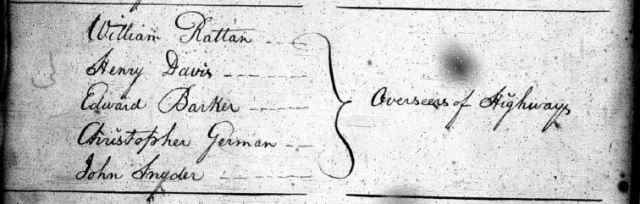 William Rattan
Henry Davis
Edward Barker
Christopher German
John Snyder
Overseers of Highways